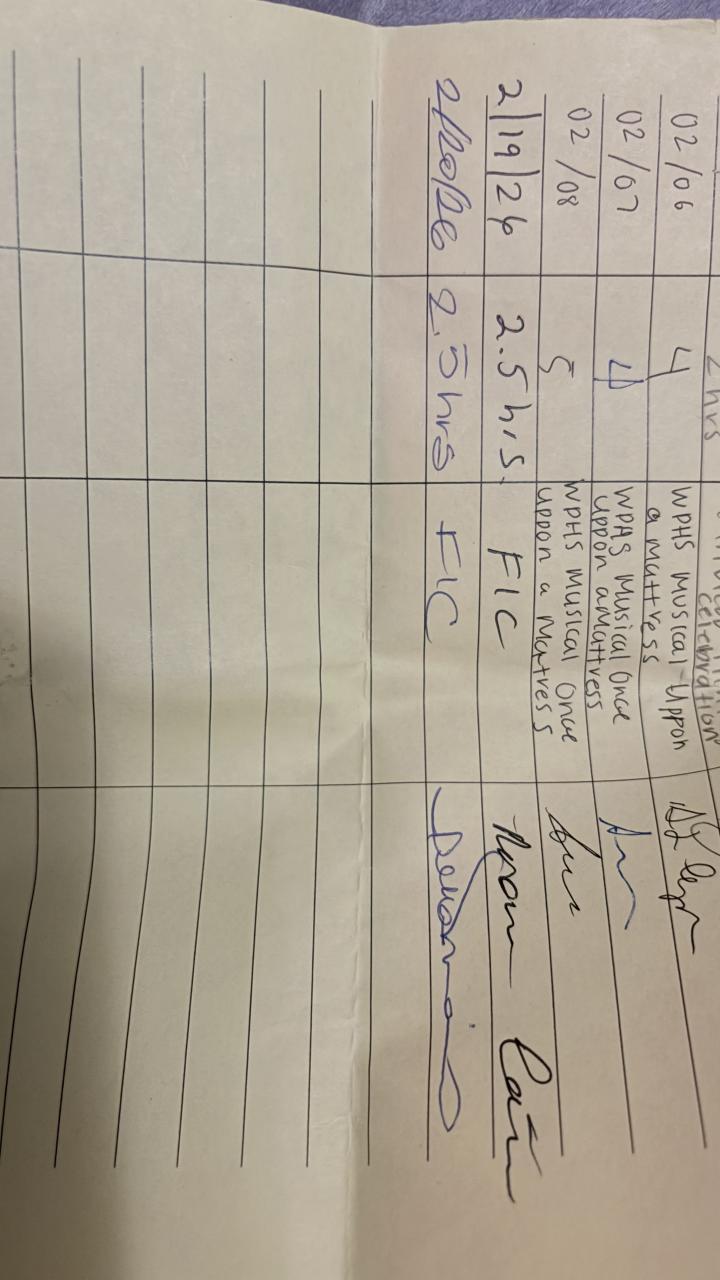 2 hrs
celebration
02/06 4 WPHS Musical-Uppon
a Mattress
02/07 4 WPHS Musical Once
uppon a Mattress
02/08 5 WPHS Musical Once
uppon a Mattress
2/19/26 2.5 hrs. FIC
2/20/26 2.5 hrs FIC